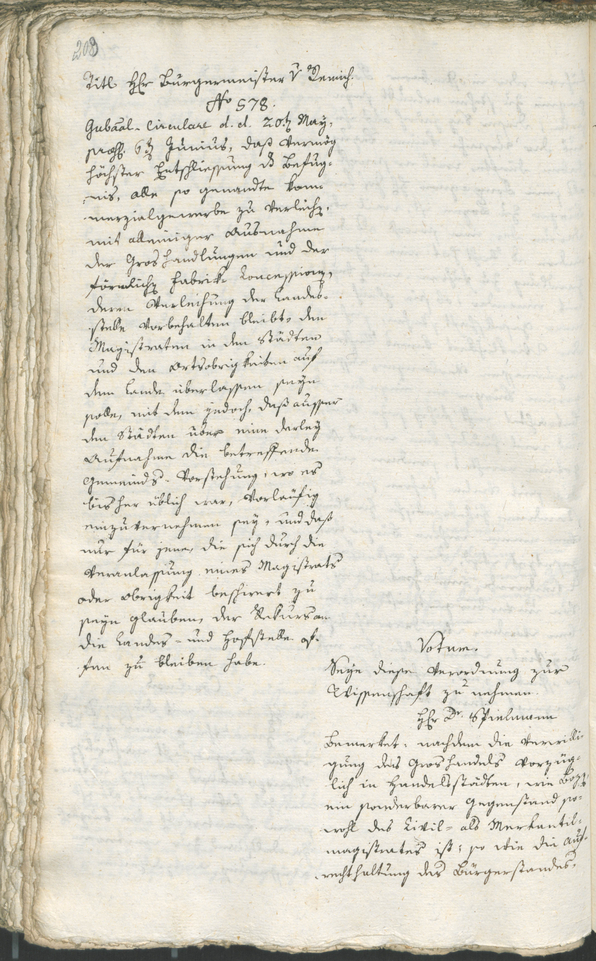 208
Titl. Hr. Bürgermeister v Remich.
No 578.
Gubaal-Circulare d. d. 20t May,
praes. 6t Junius, daß vermög
höchster Entschliessung die Befug-
nis, alle so genandte Kom-
merzialgewerbe zu verleihen,
mit alleiniger Ausnahme
der Groshandlungen und der
förmlichen Fabriks Koncessionen,
deren Verleihung der Landes-
stelle vorbehalten bleibt, den
Magistraten in den Städten
und den Ortsobrigkeiten auf
dem Lande überlassen seyn
solle, mit dem jedoch, daß ausser
den Städten über eine derley
Aufnahme die betreffende
Gemeinds-Vorstehung, wo es
bisher üblich war, vorläufig
einzuvernehmen sey, und daß
nur für jene, die sich durch die
Veranlassung eines Magistrats
oder Obrigkeit beschwert zu
seyn glauben, der Rekurs an
die Landes- und Hofstelle of-
fen zu bleiben habe.
Votum.
Seye diese Verordnung zur
Wissenschaft zu nehmen.
Hr Dr. Spielmann
Bemerket, nachdem die Verwilli-
gung des Groshandels vorzüg-
lich in Handelsstädten, wie Bozen
ein sonderbarer Gegenstand so-
wohl des Civil- als Merkantil-
magistrates ist; so wie die auf-
rechthaltung des Bürgerstandes-